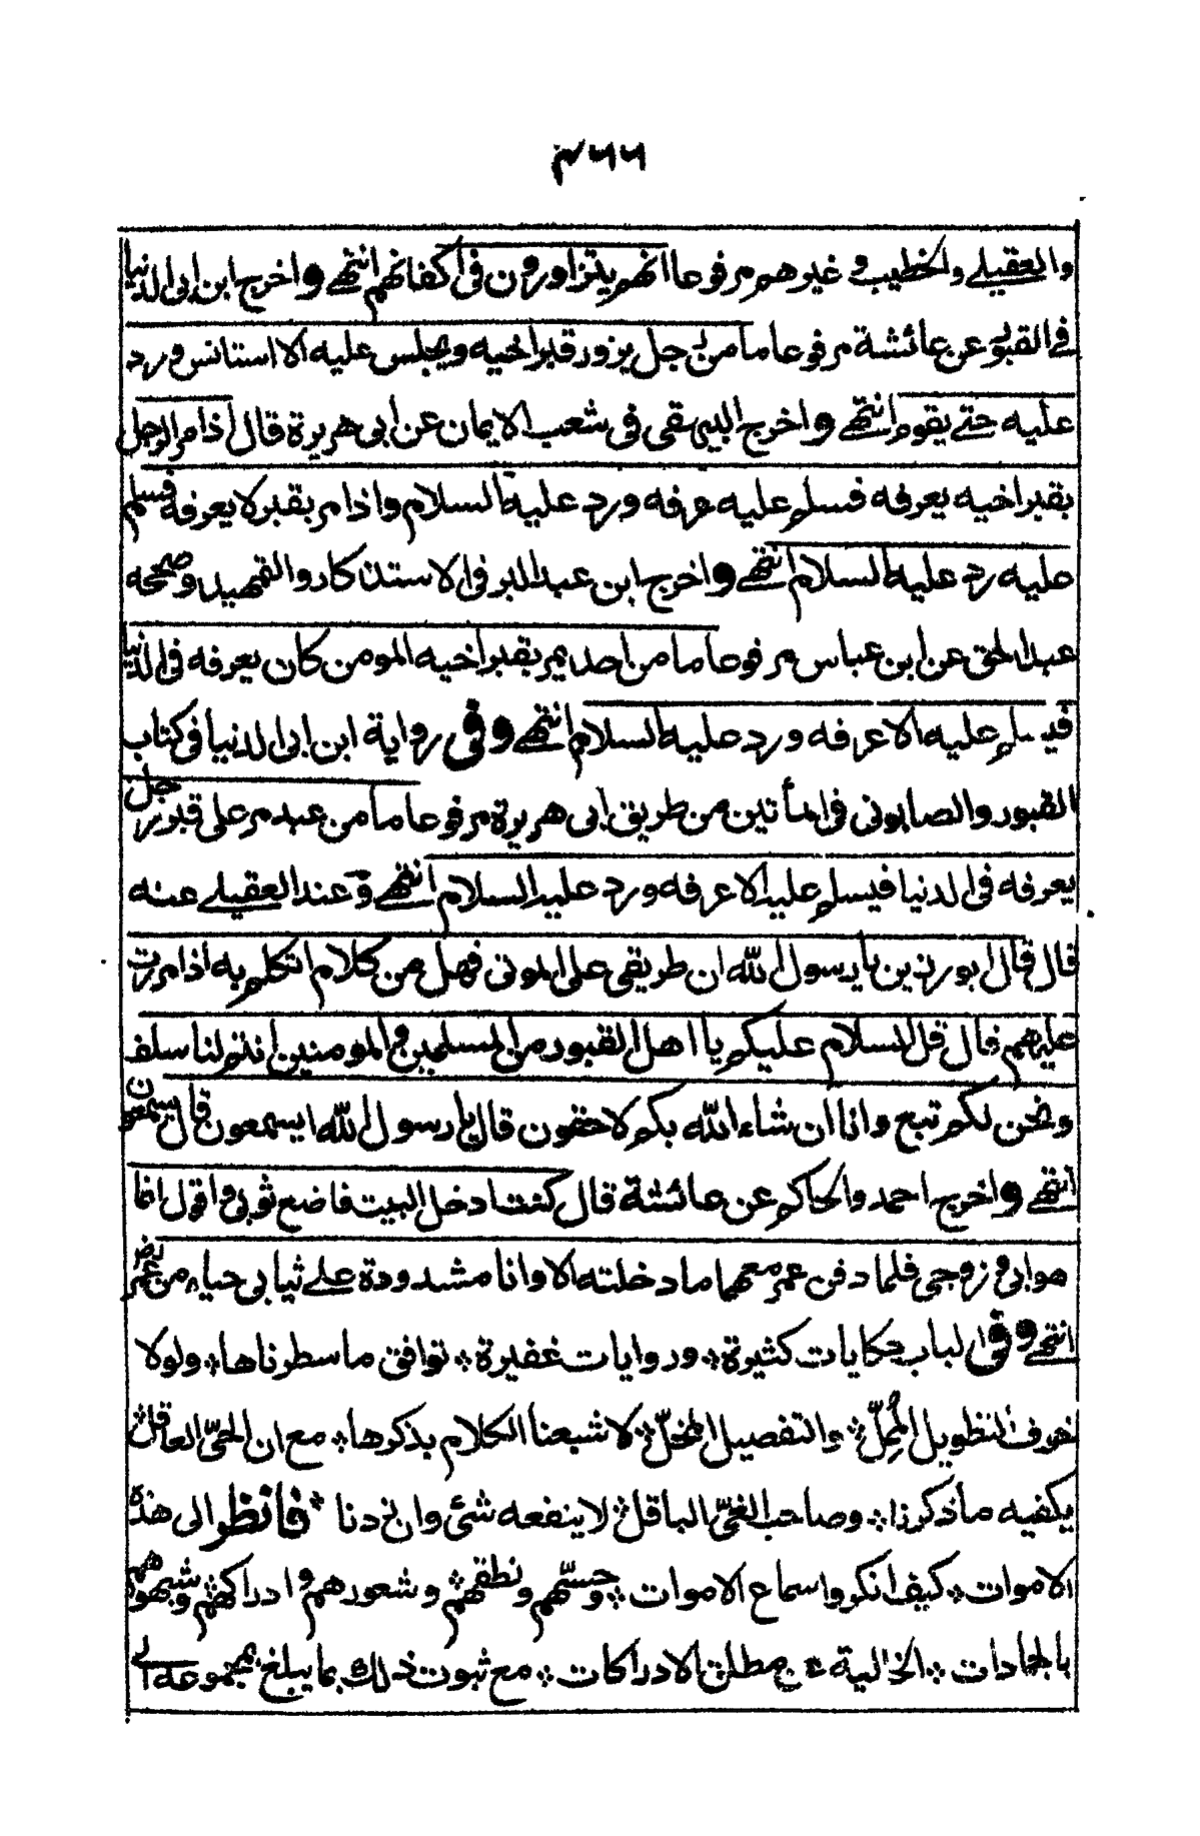 ٣٦٦
والعقيلے والخطيب و غيرهم مرفوعا انهم يتزاورون فى اكفانهم انتهے واخرج ابن ابى الدنيا
فے القبور عن عائشة مرفوعا ما من رجل يزور قبر اخيه ويجلس عليه الا استانس ورد
عليه حتے يقوم انتهے واخرج البيهقى فى شعب الايمان عن ابى هريرة قال اذا مر الرجل
بقبر اخيه يعرفه فسلم عليه عرفه ورد عليه السلام واذا مر بقبر لا يعرفه فسلم
عليه رد عليه السلام انتهے واخرج ابن عبد البر فى الاستذكار والتمهيد وصححه
عبد الحق عن ابن عباس مرفوعا ما من احد يمر بقبر اخيه المومن كان يعرفه فى الدنيا
فيسلم عليه الا عرفه ورد عليه السلام انتهے وفى رواية ابن ابى الدنيا فى كتاب
القبور والصابونى فى المأتين من طريق ابى هريرة مرفوعا ما من عبد مر على قبر رجل
يعرفه فى الدنيا فيسلم عليه الا عرفه ورد عليه السلام انتهے وعند العقيلے عنه
قال قال ابو رزين يا رسول الله ان طريقى على الموتى فهل من كلام اتكلم به اذا مررت
عليهم قال قل السلام عليكم يا اهل القبور من المسلمين والمومنين انتم لنا سلف
ونحن لكم تبع وانا ان شاء الله بكم لاحقون قال يا رسول الله ايسمعون قال يسمعون
انتهے واخرج احمد والحاكم عن عائشة قال كنت ادخل البيت فاضع ثوبى واقول انما
هو ابى وزوجى فلما دفن عمر معهما ما دخلته الا وانا مشدودة علے ثيابى حياء من عمر رض
انتهے وفى الباب حكايات كثيرة ۞ وروايات غفيرة ۞ توافق ما سطرناها ۞ ولولا
خوف التطويل المُمِلّ ۞ والتفصيل المخلّ ۞ لاشبعنا الكلام بذكرها ۞ مع ان الحىّ العاقل ۞
يكفيه ما ذكرنا ۞ وصاحب الغىّ الباقل ۞ لا ينفعه شئ وان زدنا ۞ فانظر الى هذه
الاموات ۞ كيف انكروا سماع الاموات ۞ وحسّهم ونطقهم ۞ وشعورهم وادراكهم ۞ وشبهوهم
بالجمادات ۞ الخالية ۞ عن مطلق الادراكات ۞ مع ثبوت ذلك بما يبلغ بمجموعه الى